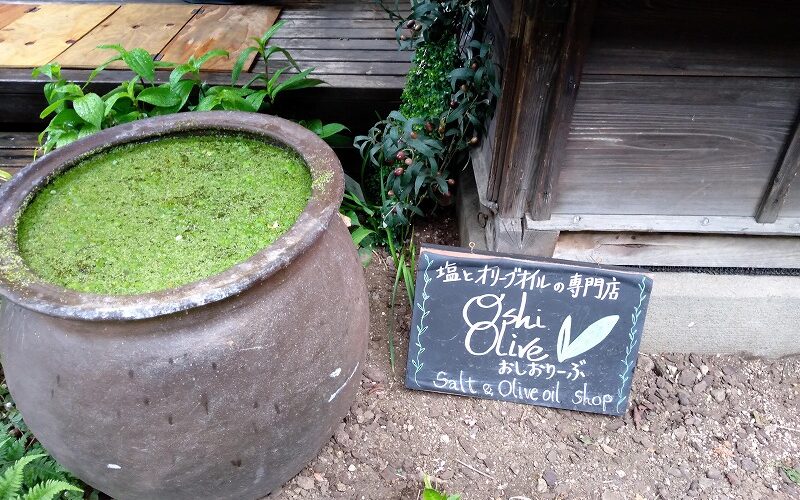 塩とオリーブオイルの専門店
Oshi
Olive
おしおりーぶ
Salt & Olive oil shop